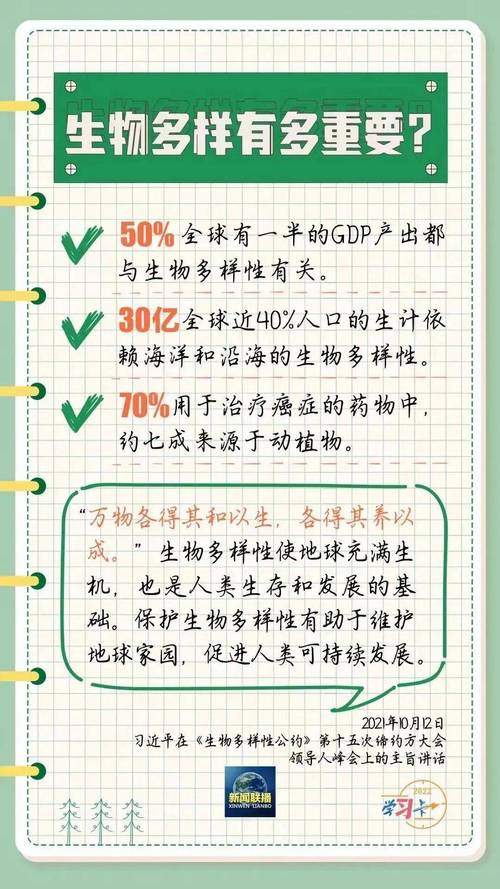 生物多样有多重要?
50%全球有一半的GDP产出都
与生物多样性有关。
30亿全球近40%人口的生计依
赖海洋和沿海的生物多样性。
70%用于治疗癌症的药物中，
约七成来源于动植物。
“万物各得其和以生，各得其养以
成。”生物多样性使地球充满生
机，也是人类生存和发展的基
础。保护生物多样性有助于维护
地球家园，促进人类可持续发展。
2021年10月12日
习近平在《生物多样性公约》第十五次缔约方大会
领导人峰会上的主旨讲话
新闻联播
XINWEN LIANBO
2022
学习卡